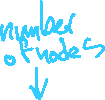 number
of nodes